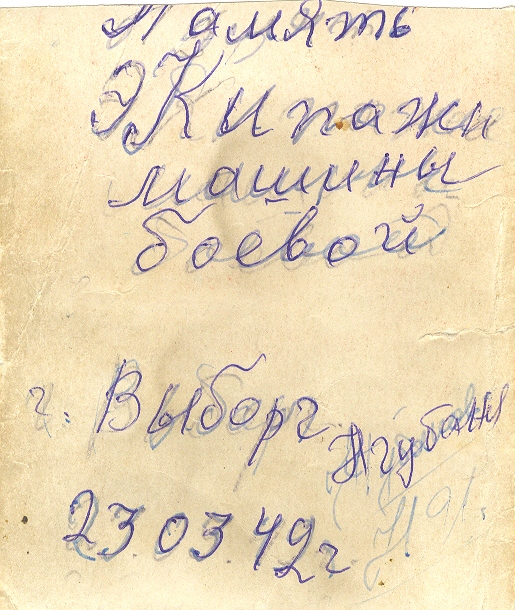 Память
Экипажи
машины
боевой
г. Выборг
23.03.49г.